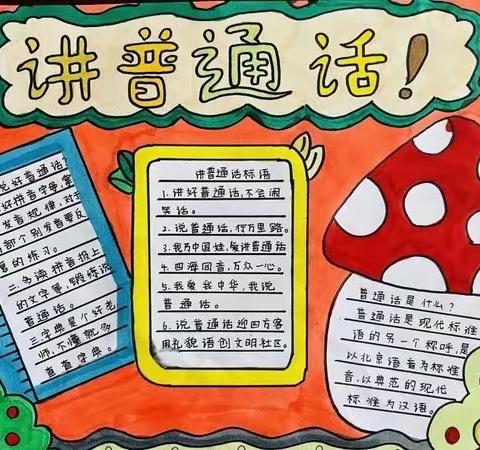 讲普通话!
说好普通话?
好拼音字母,掌
发音规律,对于
部个别发音要反
复的练习。
二.多读拼音报上
的文字等,锻炼说
普通话。
三.字典是个好老
师,不懂就多
查查字典。
讲普通话标语
1.讲好普通话,不会闹
笑话。
2.说普通话,行万里路。
3.我为中国娃,爱讲普通话
4.四海同音,万众一心。
5.我爱我中华,我说
普通话。
6.说普通话迎四方客
用礼貌语创文明社区。
普通话是什么?
普通话是现代标准
语的另一个称呼,是
以北京语音为标准
音,以典范的现代
标准为汉语。